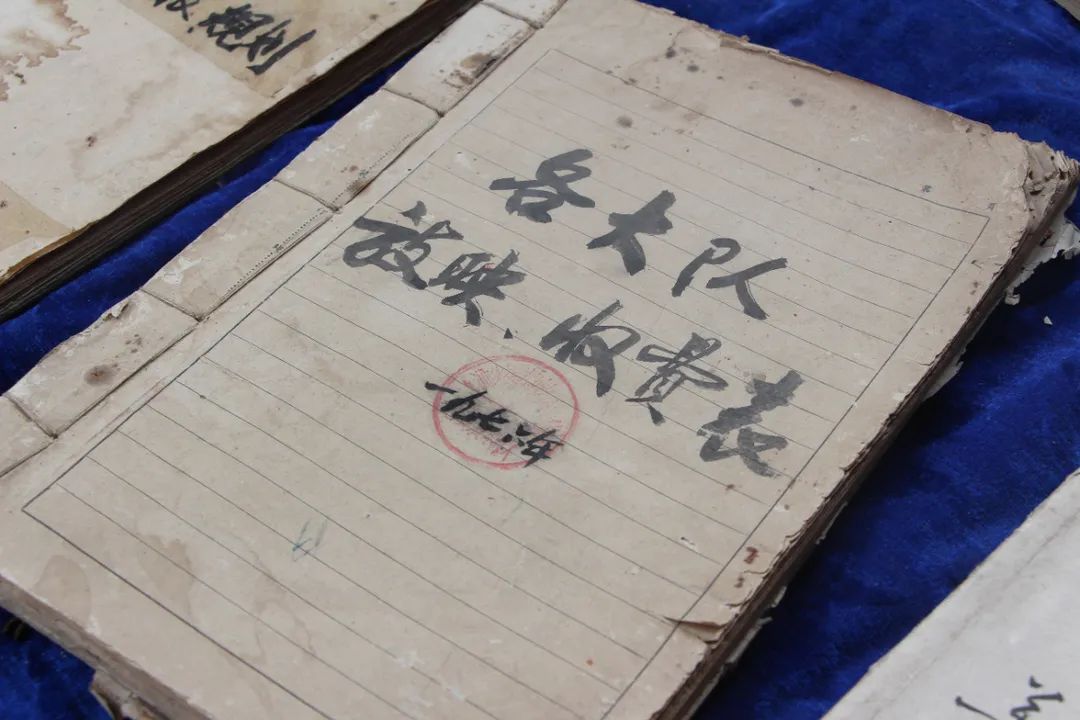 规划
各大队
放映、收费表
一九七六年